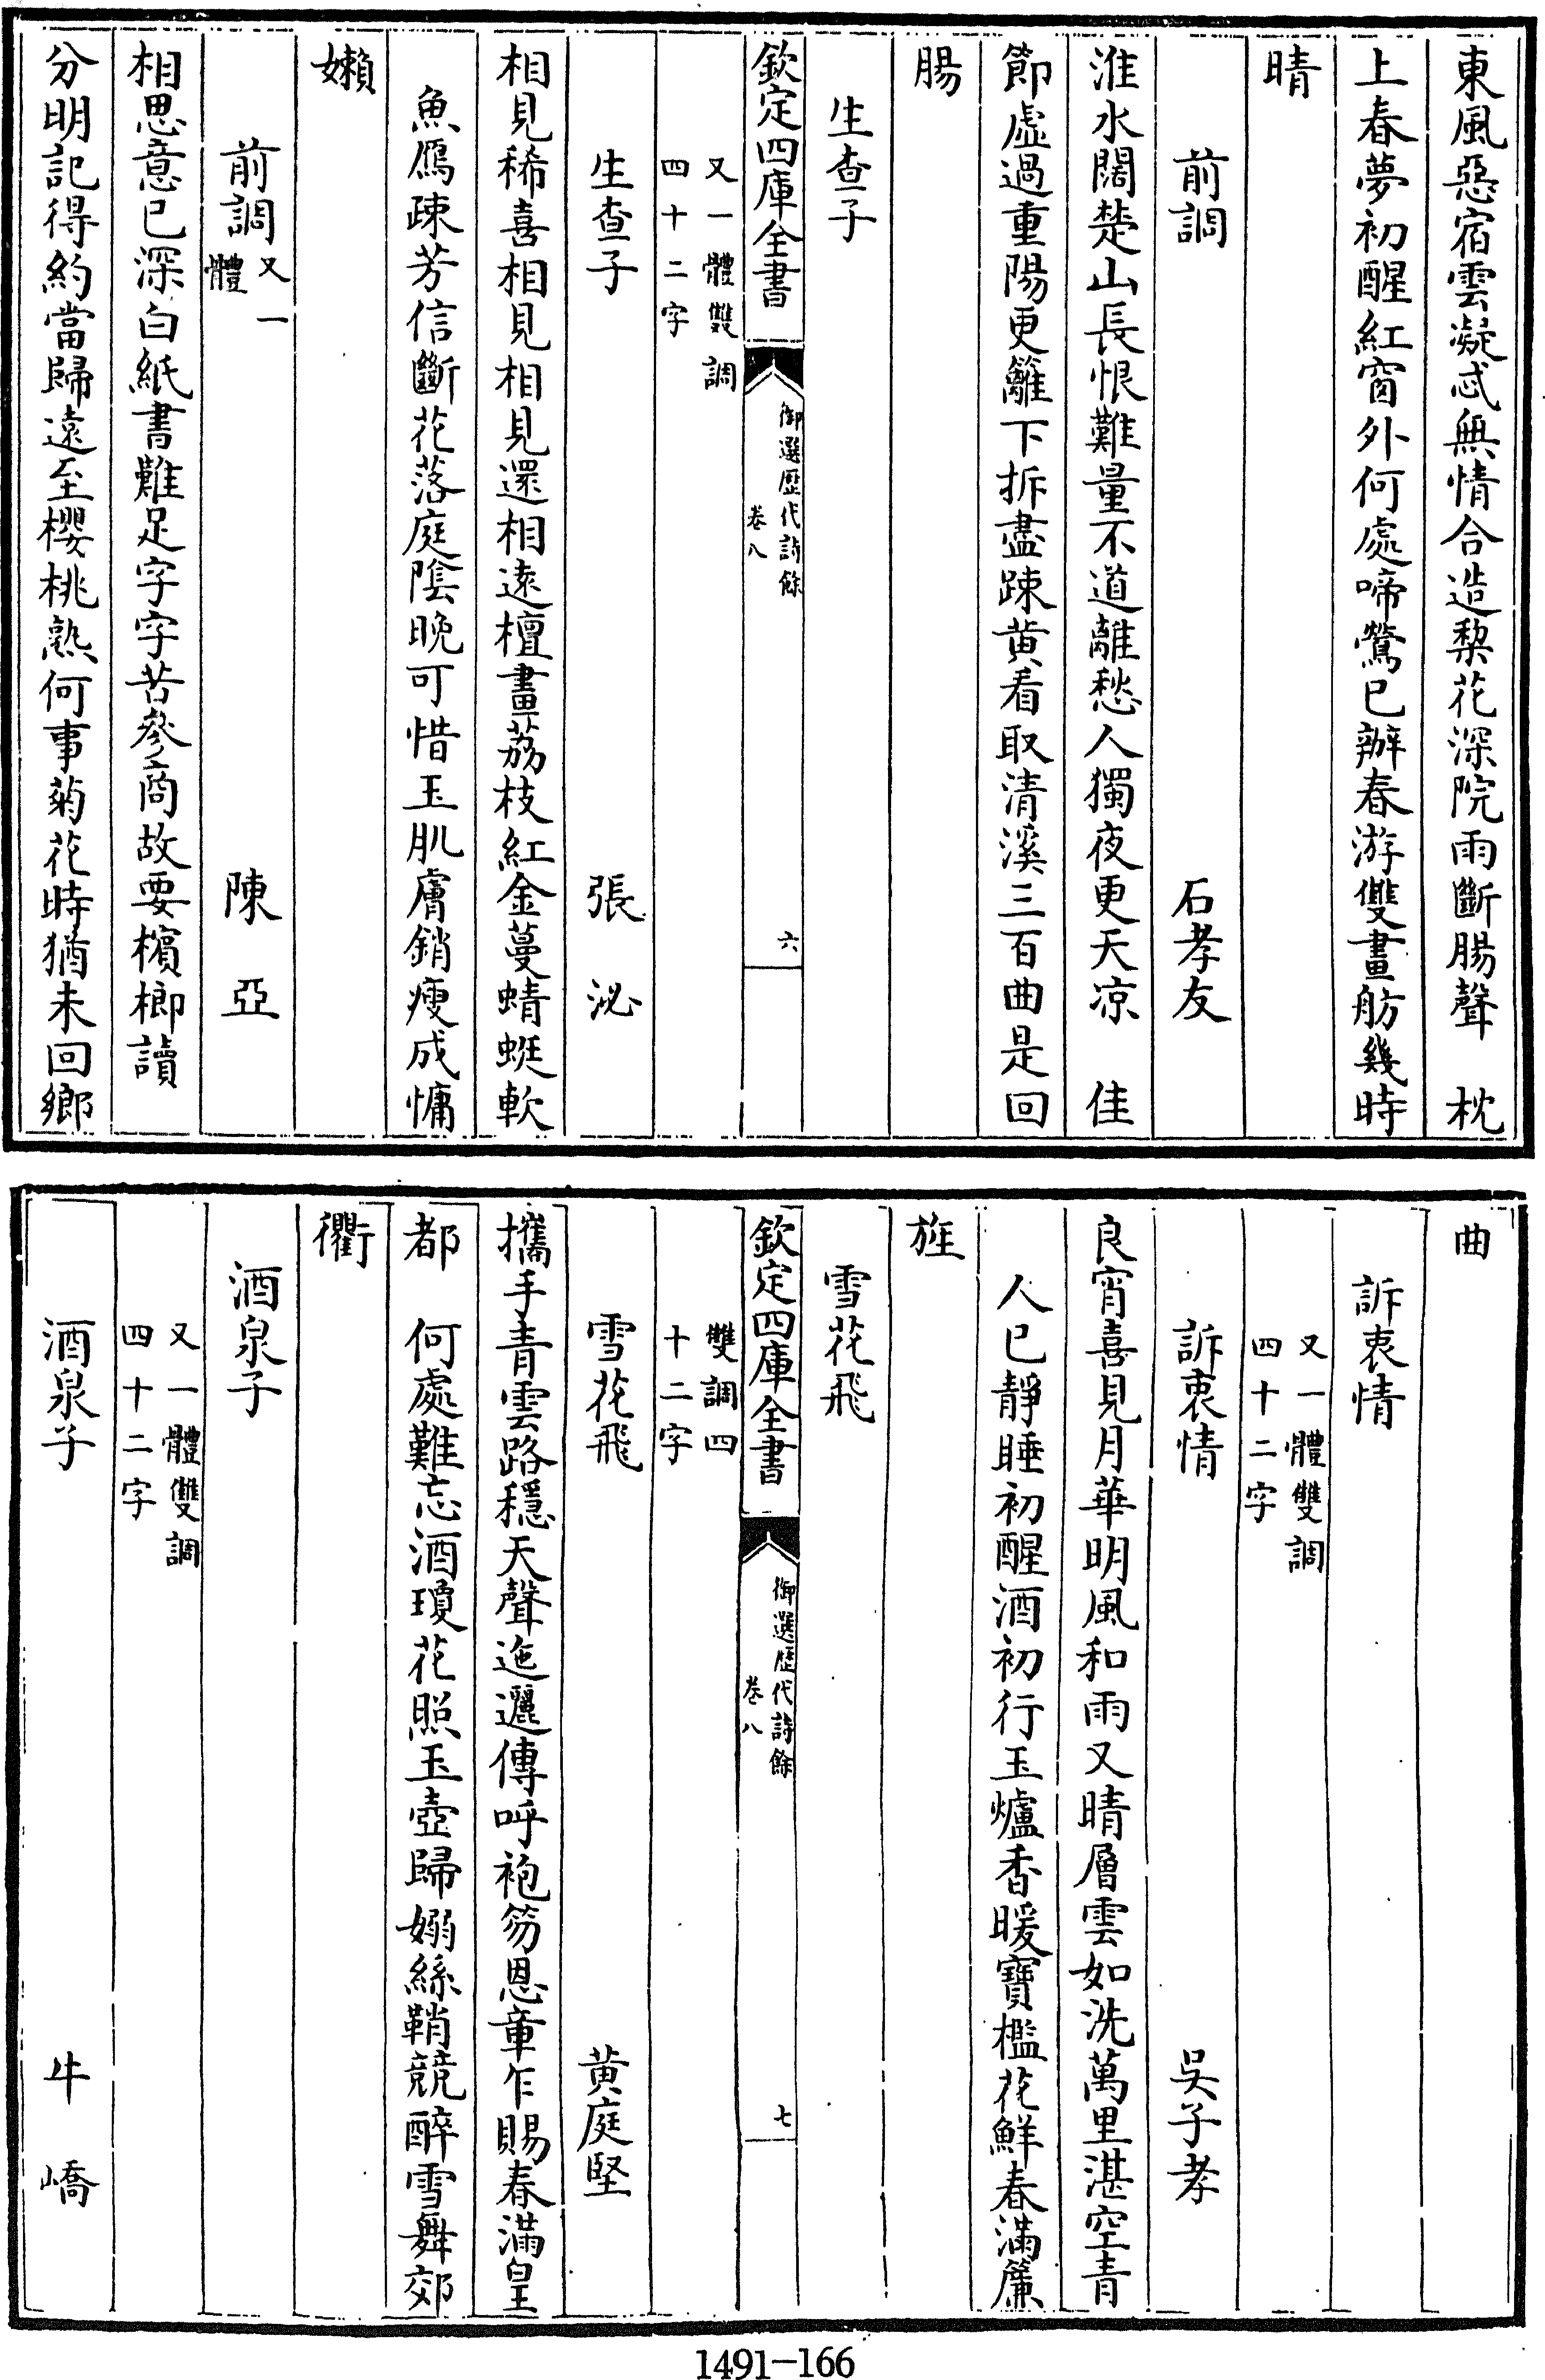 東風惡宿雲凝忒無情合造棃花深院雨斷腸聲　枕
上春夢初醒紅窗外何處啼鶯已辦春游雙畫舫幾時
晴
前調　石孝友
淮水闊楚山長恨難量不道離愁人獨夜更天凉　佳
節虛過重陽更籬下拆盡踈黄看取清溪三百曲是回
腸
生查子
欽定四庫全書　御選歷代詩餘　卷八　六
又一體雙調
四十二字
生查子　張泌
相見稀喜相見相見還相遠檀畫荔枝紅金蔓蜻蜓軟
魚鴈疎芳信斷花落庭陰晚可惜玉肌膚銷瘦成慵
嬾
前調又一體　陳亞
相思意已深白紙書難足字字苦參商故要檳榔讀
分明記得約當歸遠至櫻桃熟何事菊花時猶未回鄉
曲
訴衷情
又一體雙調
四十二字
訴衷情　吳子孝
良宵喜見月華明風和雨又晴層雲如洗萬里湛空青
人已靜睡初醒酒初行玉爐香暖寶檻花鮮春滿簾
旌
雪花飛
欽定四庫全書　御選歷代詩餘　卷八　七
雙調四
十二字
雪花飛　黄庭堅
攜手青雲路穩天聲迤邐傳呼袍笏恩章乍賜春滿皇
都　何處難忘酒瓊花照玉壺歸嫋絲鞘競醉雪舞郊
衢
酒泉子
又一體雙調
四十二字
酒泉子　牛嶠
1491-166